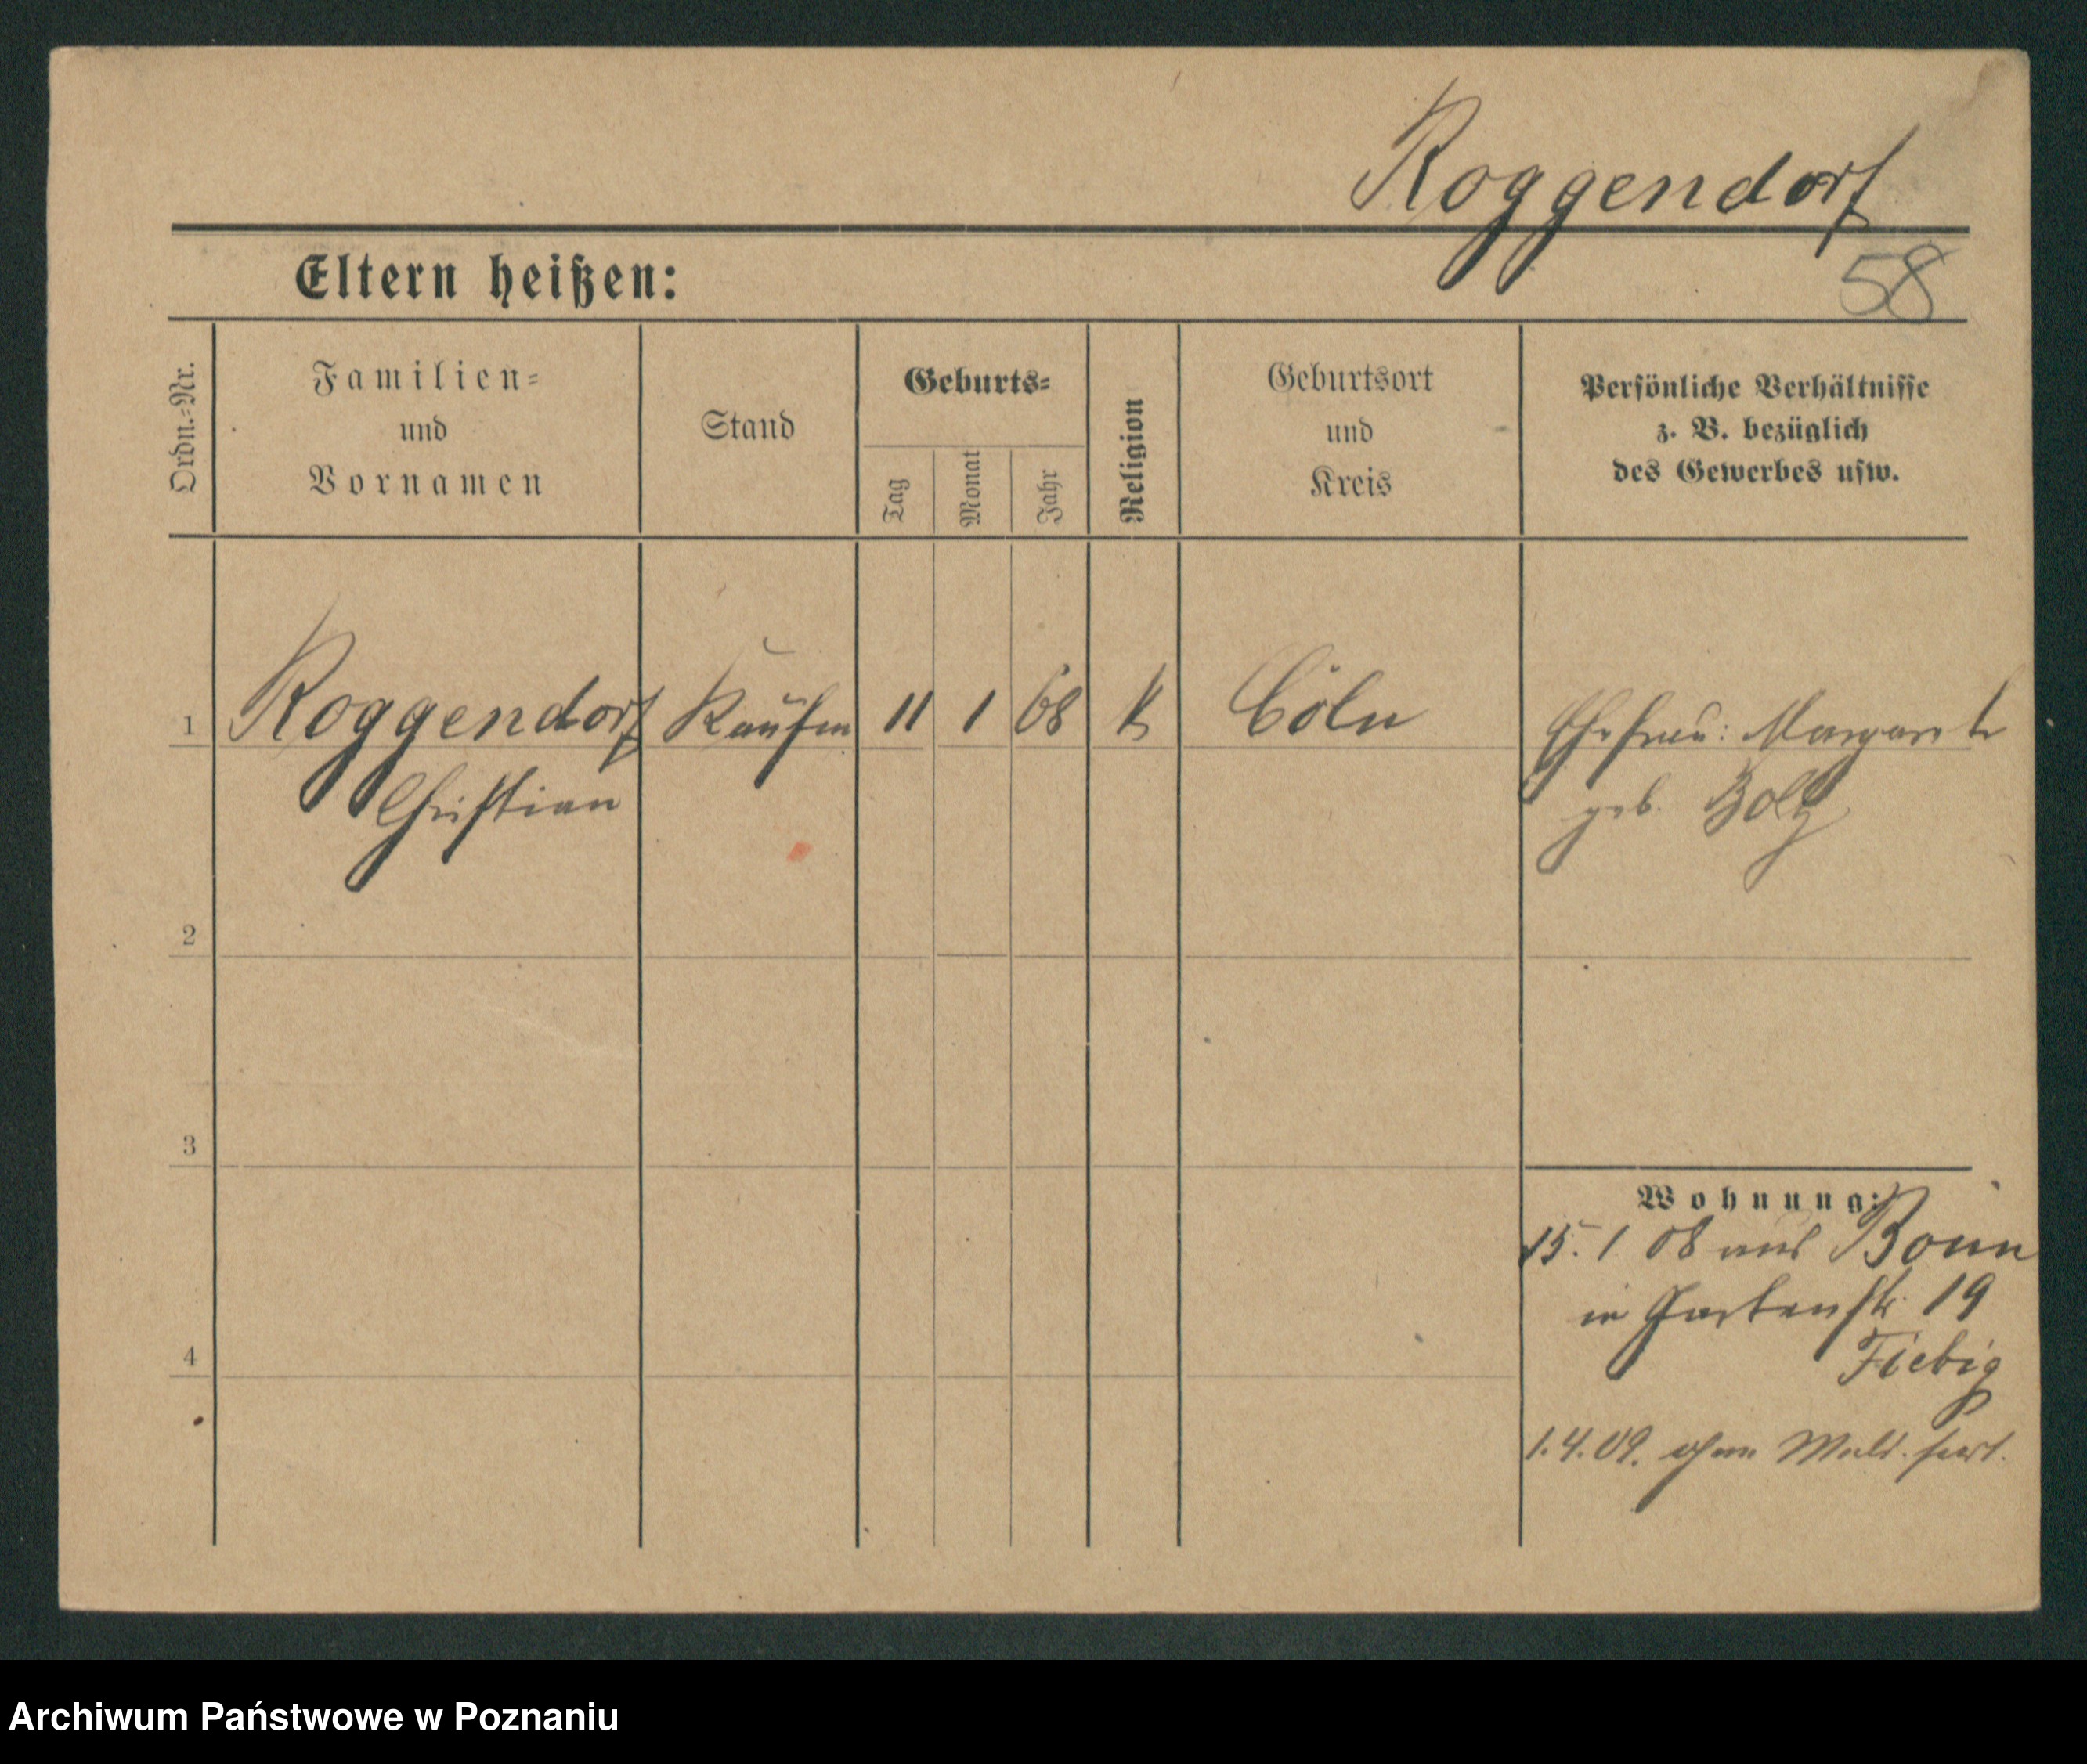 Roggendorf
58
Eltern heißen:
Ordn.-Nr.
Familien-
und
Vornamen
Stand
Geburts-
Tag
Monat
Jahr
Religion
Geburtsort
und
Kreis
Persönliche Verhältnisse
z. B. bezüglich
des Gewerbes usw.
1 Roggendorf Kaufm 11 1 68 k Cöln Ehefrau: Margarete
Christian geb. Bolz
2
3
Wohnung:
15. 1 08 aus Bonn
in Gartenstr. 19
Fiebig
4
1.4.09. ohne Meld. fort.
Archiwum Państwowe w Poznaniu